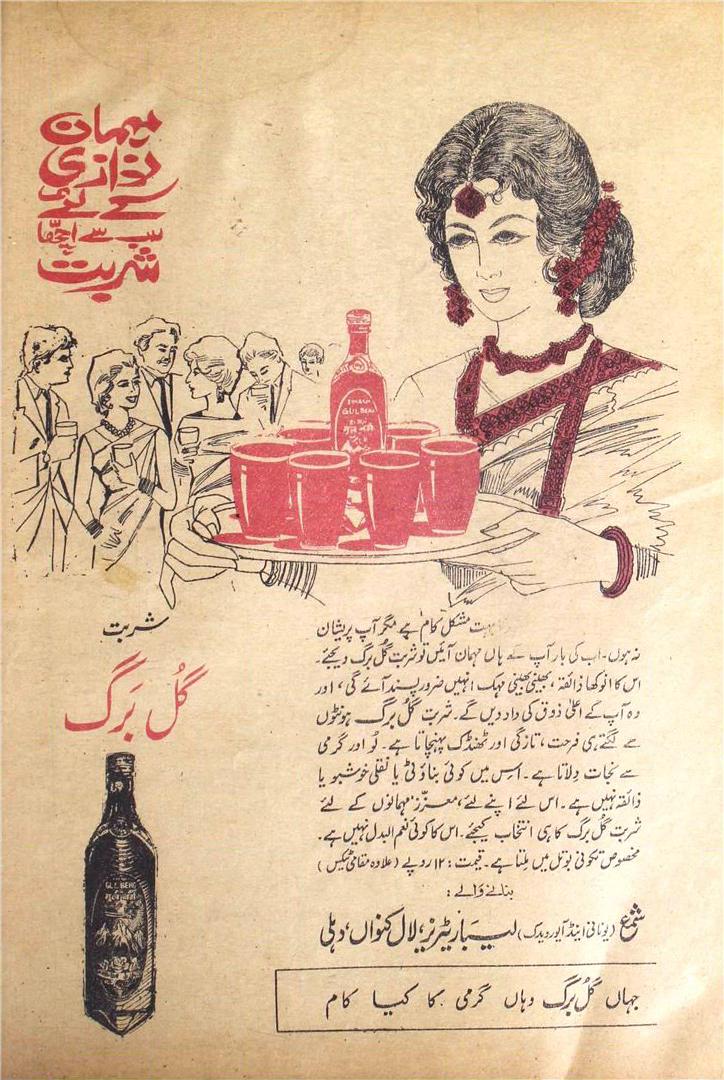 مہمان
نوازی
کے لئے
سب سے اچھا
شربت
GULBERG
شربت
گُل بَرگ
GULBERG
بہت مشکل کام ہے مگر آپ پریشان
نہ ہوں۔ اب کی بار آپ کے ہاں مہمان آئیں تو شربت گُل برگ دیجئے۔
اس کا انوکھا ذائقہ، بھینی بھینی مہک انہیں ضرور پسند آئے گی، اور
وہ آپ کے اعلیٰ ذوق کی داد دیں گے۔ شربت گُل برگ ہونٹوں
سے لگتے ہی فرحت، تازگی اور ٹھنڈک پہنچاتا ہے۔ لُو اور گرمی
سے نجات دِلاتا ہے۔ اس میں کوئی بناوٹی یا نقلی خوشبو یا
ذائقہ نہیں ہے۔ اس لئے اپنے لئے، معزّز مہمانوں کے لئے
شربت گُل برگ کا ہی انتخاب کیجئے۔ اس کا کوئی نعم البدل نہیں ہے۔
مخصوص تکونی بوتل میں مِلتا ہے۔ قیمت: ۱۲ روپے (علاوہ مقامی ٹیکس)
بنانے والے:
شمع (یونانی اینڈ آیورویدک) لیبارٹریز، لال کنواں، دہلی
جہاں گُل برگ وہاں گرمی کا کیا کام